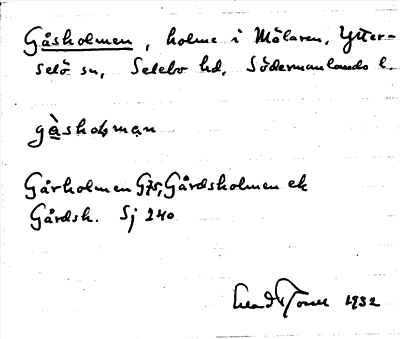 Gåsholmen, holme i Mälaren, Ytter-
selö sn, Selebo hd, Södermanlands l.
gåsholman
Gårholmen G75, Gårdsholmen ek
Gårdsh. Sj 240
1932